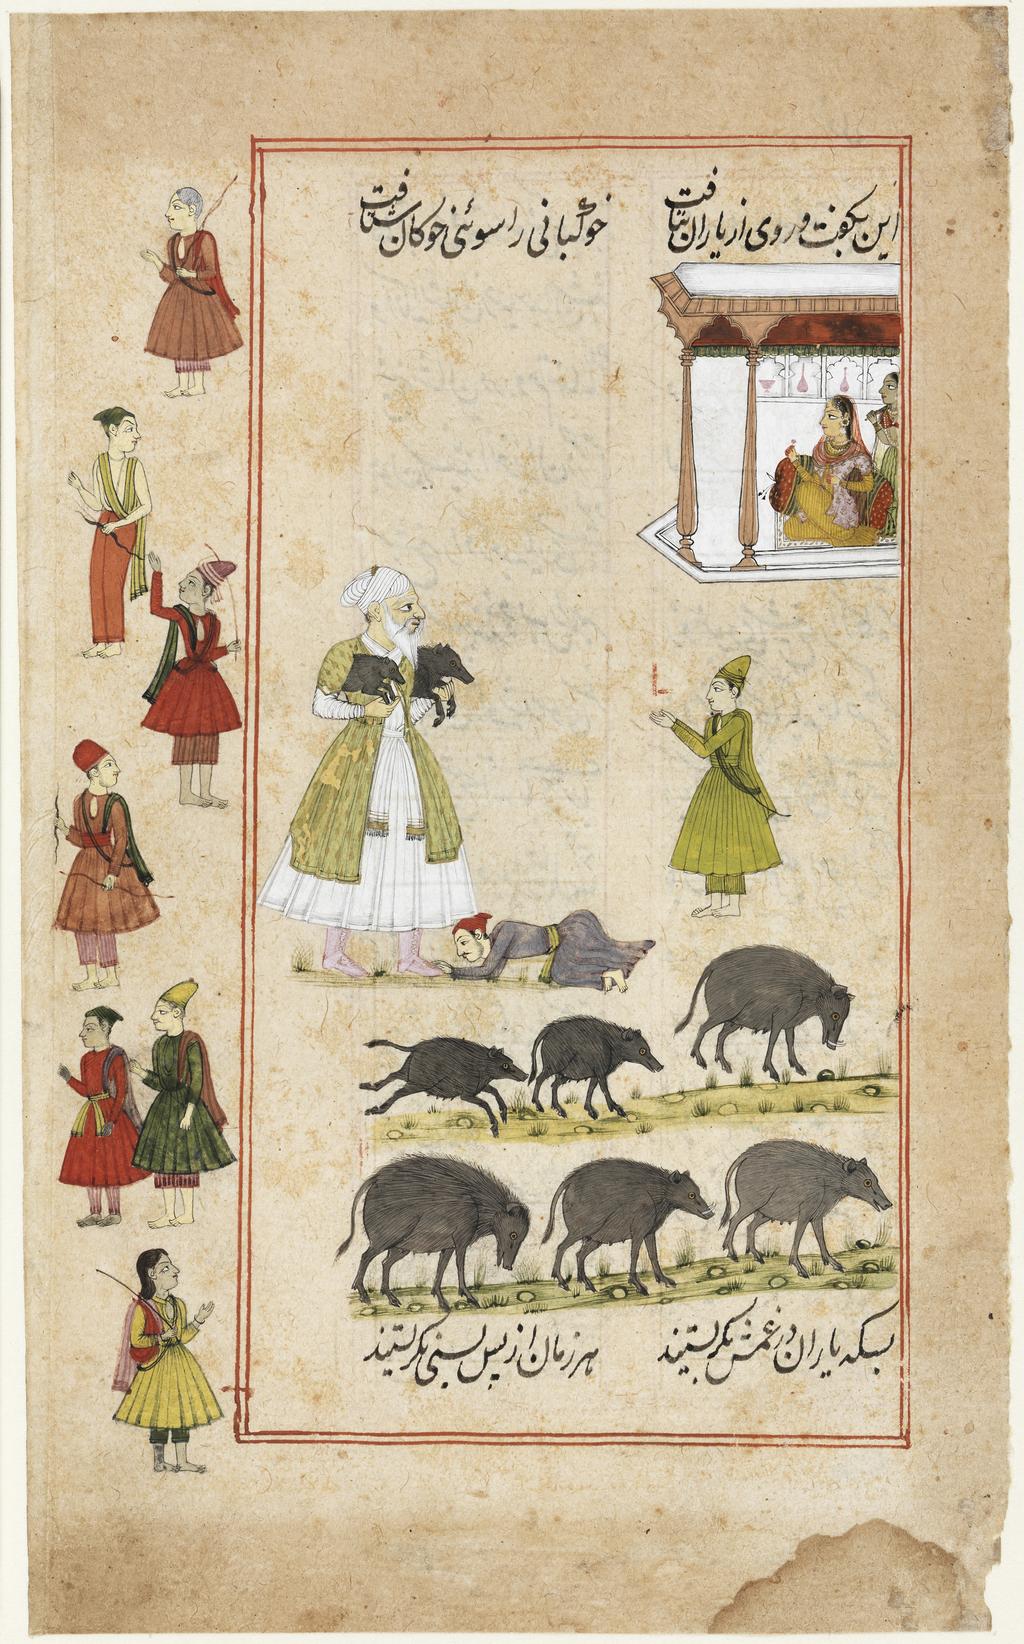 این بگفت و روی از یاران بتافت
خوکبانی را سوئی خوکان شتافت
بسکه یاران در غمش بگریستند
هر زمان از پس بسی نگریستند